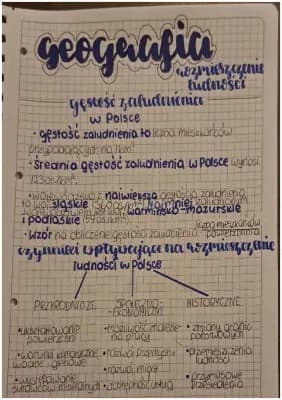 geografia
rozmieszczenie
ludności
gęstość zaludnienia
w Polsce
• gęstość zaludnienia to liczba mieszkańców
przypadających na 1km²
• Średnia gęstość zaludnienia w Polsce wynosi
123os/km²
• województwo z największą gęstością zaludnienia
to woj. śląskie Najmniej zaludnionym
warmińsko-mazurskie
i podlaskie (59os/km²)
liczba mieszkańców
• wzór na obliczenie gęstości zaludnienia powierzchnia
czynniki wpływające na rozmieszczenie
ludności w Polsce
PRZYRODNICZE SPOŁECZNO-
EKONOMICZNE HISTORYCZNE
• ukształtowanie
powierzchni
• możliwość znalezie-
nia pracy
• zmiany granic
państwowych
• warunki klimatyczne
wodne i glebowe
• rozwój przemysłu
• rozwój miast
• przemieszczenia
ludności
• występowanie
surowców mineralnych
• dostępność usług
• przymusowe
przesiedlenia